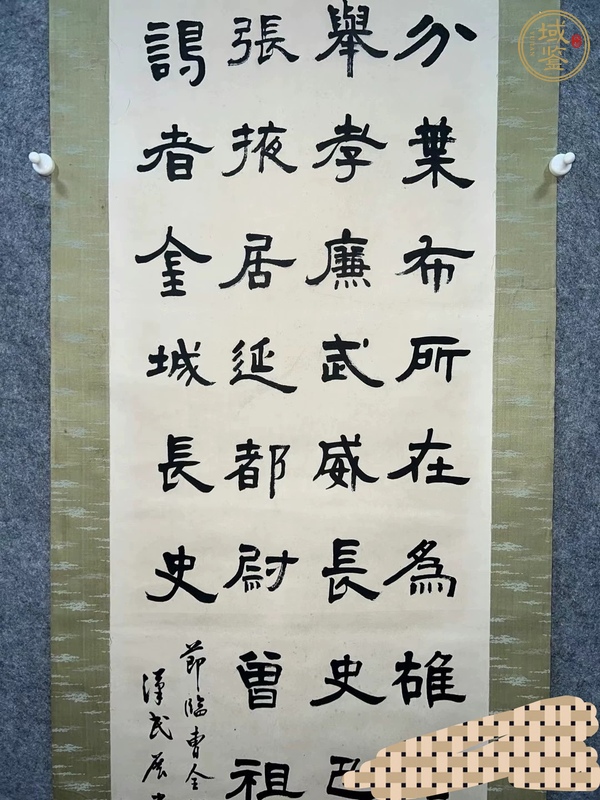 分業布所在為雄
舉孝廉武威長史
張掖居延都尉曾祖
謁者金城長史
節臨曹全
漢
域鑒